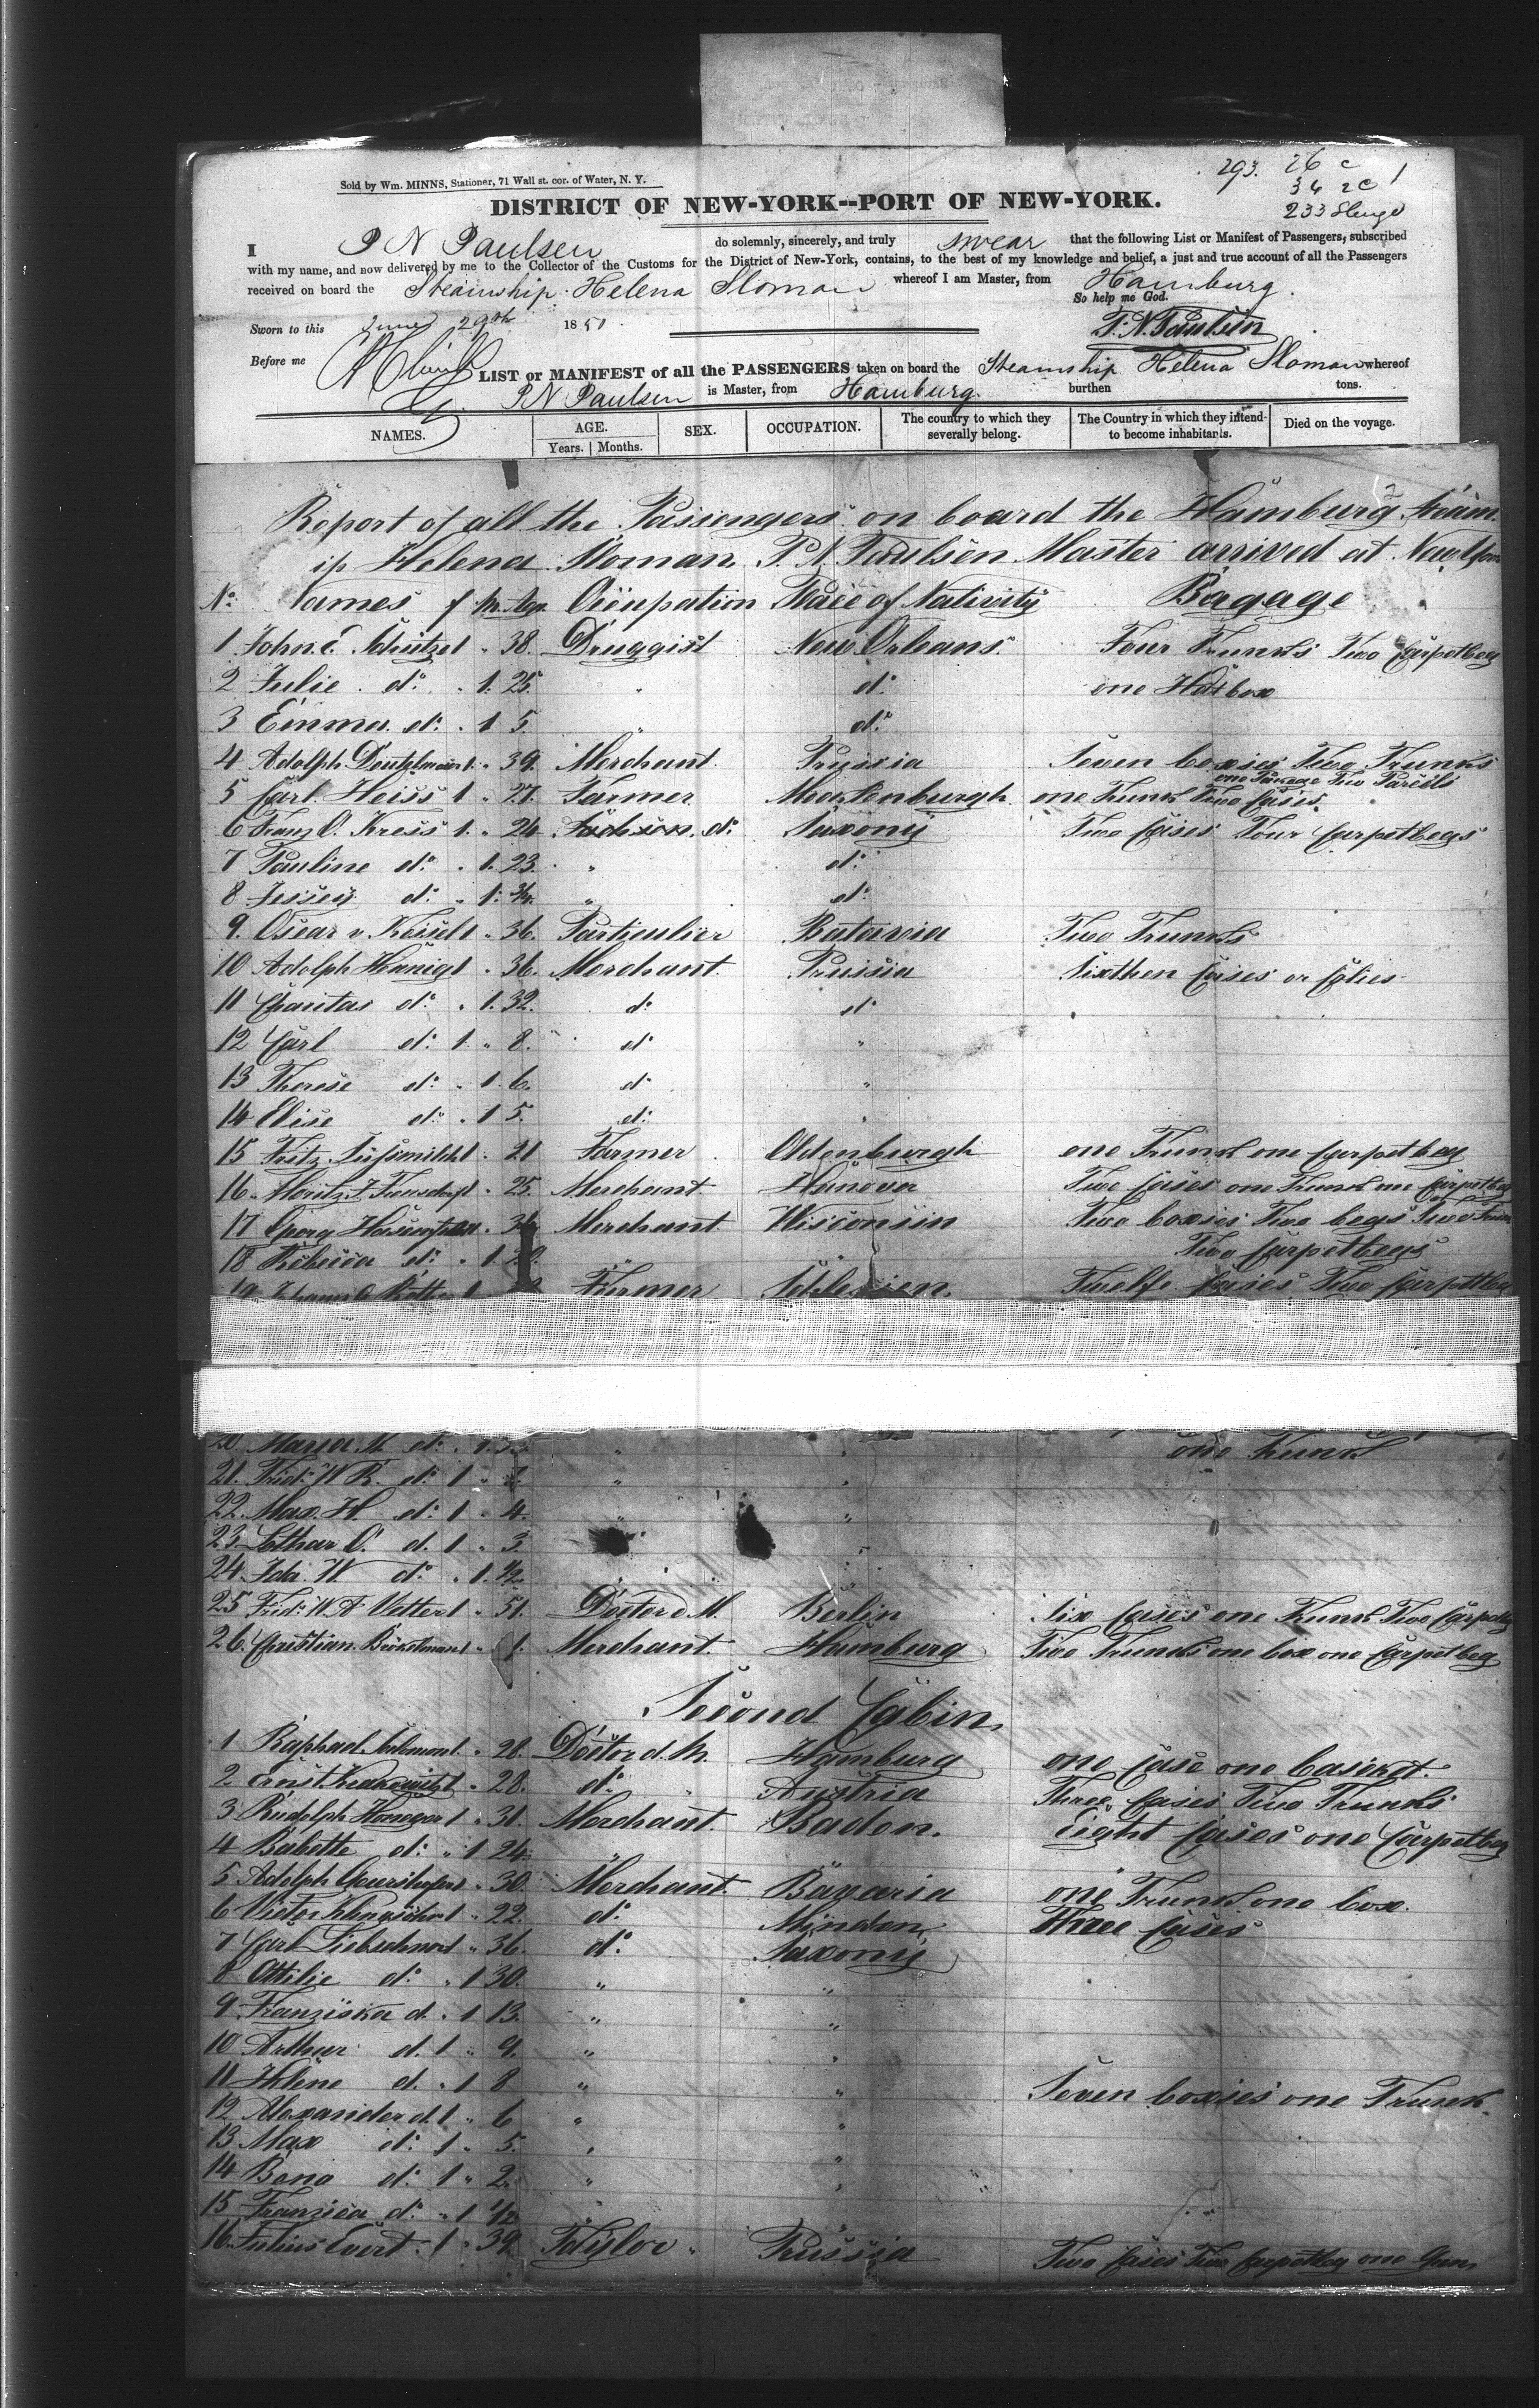 293. 26 c 1
34 2C
233 Steerge
Sold by Wm. MINNS, Stationer, 71 Wall st. cor. of Water, N. Y.
DISTRICT OF NEW-YORK--PORT OF NEW-YORK.
I P N Paulsen do solemnly, sincerely, and truly swear that the following List or Manifest of Passengers, subscribed
with my name, and now delivered by me to the Collector of the Customs for the District of New-York, contains, to the best of my knowledge and belief, a just and true account of all the Passengers
received on board the Steamship Helena Sloman whereof I am Master, from Hamburg.
So help me God.
Sworn to this June 29th 1851. P. N. Paulsen
Before me
LIST or MANIFEST of all the PASSENGERS taken on board the Steamship Helena Sloman whereof
P N Paulsen is Master, from Hamburg. burthen tons.
NAMES. AGE. Years. Months. SEX. OCCUPATION. The country to which they severally belong. The Country in which they intend to become inhabitants. Died on the voyage.
Report of all the Passengers on board the Hamburg Steam
ip Helena Sloman, P. N. Paulsen Master arrived at New York
No. Names f M. Age Ocupation Place of Nativity Bagage
1 John 1 " 38. Druggist New Orleans. Four Trunks Two Carpetbeg
2 Julie do. " 1. 25. " do. one Hatbox
3 Emma do. " 1 5. " do.
4 Adolph 1. " 39. Merchant. Prussia Seven boxies Two Trunks
one Package Two Parcels
5 Carl Heiss 1 " 27. Farmer Mecklenburgh. one Trunk Two Cases.
6 Franz O. Kress 1. " 24 do. Saxony Two Cases Four Carpetbegs
7 Pauline do. " 1. 23. " do.
8 Jessey do. " 1. 3/4. " do.
9. Oscar v 1 " 36. Particulier Batavia Two Trunks
10 Adolph 1 " 36. Merchant. Prussia Sixthen Cases or Colies
11 Charitas do. " 1. 32. do do
12 Carl do. 1. " 8. do "
13 Therese do. " 1. 6. do "
14 Elise do. " 1 5. do. "
15 Fritz 1 " 21 Farmer Oldenburgh one Trunk one Carpetbeg
16. Moritz J. 1 " 25. Merchant. Hanover Two Cases one Trunk one Carpetbeg
17 Georg " Merchant. Wisconsin Two boxies Two begs Two
18 Rebecca do. " 1 " " Two Carpetbegs
19 1 Farmer Schlesien. Twelfe Cases Two Carpetbeg
20. Maria M. do. " 1. " " one Trunk
21. Fried. W R. do. 1 " " "
22. Max. H. do. 1 " 4. " "
23. Lothar O. d. 1 " 3.
24. Ida. W do. " 1. 1/2.
25 Fried. W. A. Vetter 1 " 51. Doctor d M. Berlin Six Cases one Trunk Two Carpetbeg
26. Christian Merchant. Hamburg Two Trunks one box one Carpetbeg
Second Cabin
1 Raphael 1. " 28. Doctor d. M. Hamburg one Case one basket.
2 Ernst 1 " 28. do. Austria Three Cases Two Trunks
3 Rudolph Honegger 1 " 31. Merchant. Baden. Eight Cases one Carpetbeg
4 Babette do. " 1 24. "
5 Adolph 1 " 30. Merchant Bavaria one Trunk one box.
6 Victor 1 " 22. do. Minden Three Cases
7 Carl 1 " 36. do. Saxony
8 Ottilie do. " 1 30. " "
9 Franziska d. " 1 13. " "
10 Arthur d. 1 " 9. " "
11 Helene d. " 1 8 " " Seven boxies one Trunk
12 Alexander d. 1 " 6 " "
13 Max do. 1 " 5. " "
14 Beno do. 1 " 2. " "
15 Franzisca do. " 1 1/2 " "
16. Julius Evert. 1 " 39. Taylor. Prussia Two Cases Two Carpetbeg one Gun